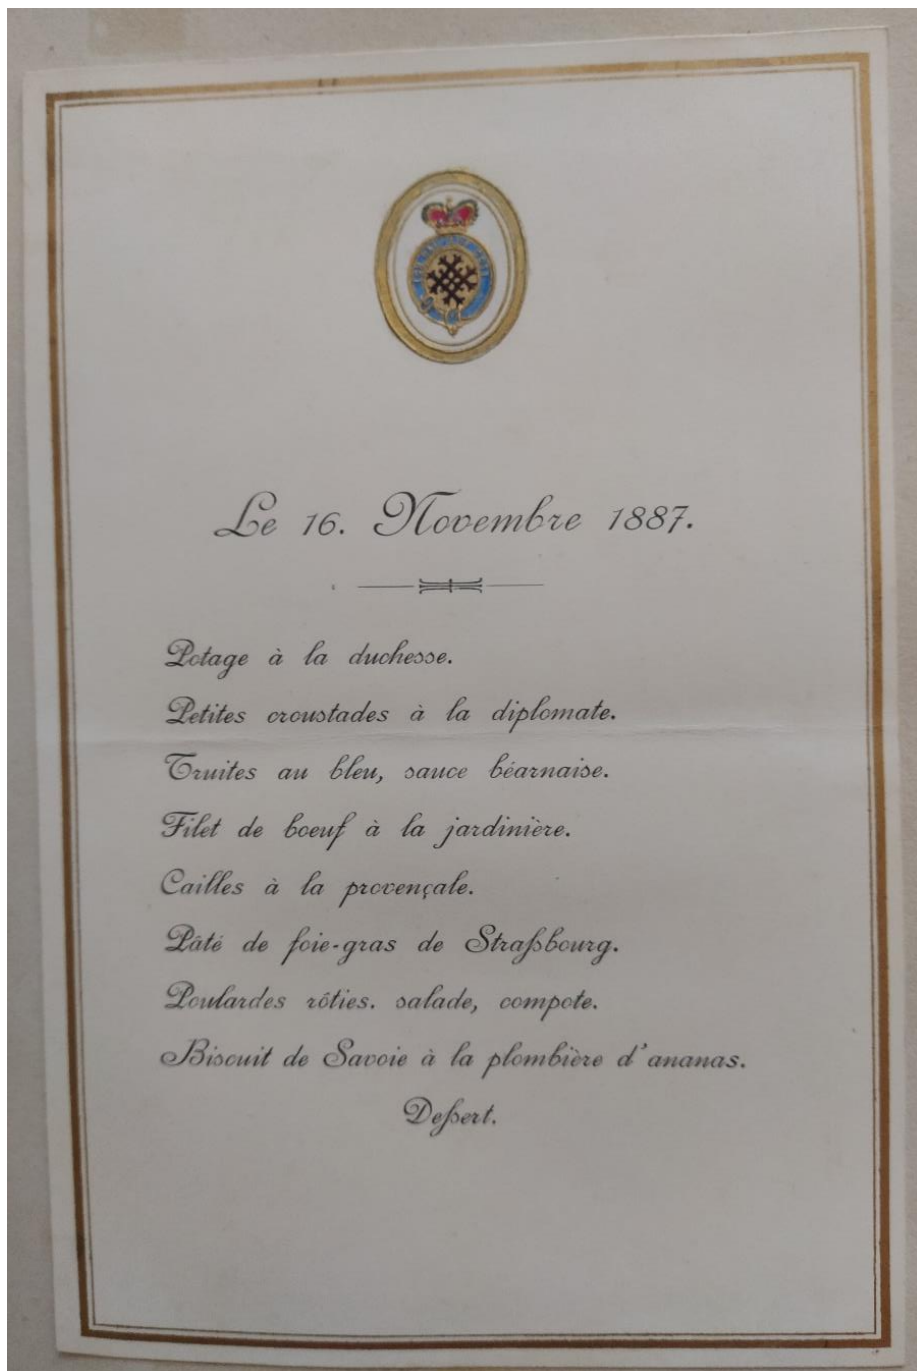 Le 16. Novembre 1887.
Potage à la duchesse.
Petites croustades à la diplomate.
Truites au bleu, sauce béarnaise.
Filet de boeuf à la jardinière.
Cailles à la provençale.
Pâté de foie-gras de Straßbourg.
Poulardes rôties. salade, compote.
Biscuit de Savoie à la plombière d'ananas.
Deßert.